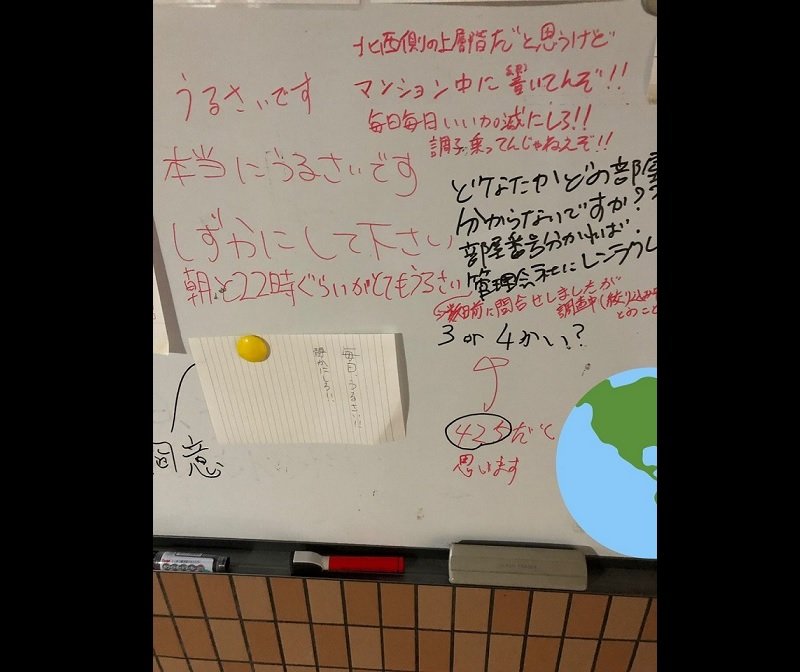 うるさいです
本当にうるさいです
しずかにして下さい
朝と22時ぐらいがとてもうるさい
北西側の上層階だと思うけど
マンション中に響いてんぞ!!
毎日毎日いい加減にしろ!!
調子乗ってんじゃねえぞ!!
どなたかどの部屋
分からないですか?
部屋番号分かれば
管理会社にレンラク
数日前に問合せしましたが
調査中(絞り込み
とのこと
3 or 4かい?
425だと
思います
毎日うるさい!!
静かにしろ!!
同意